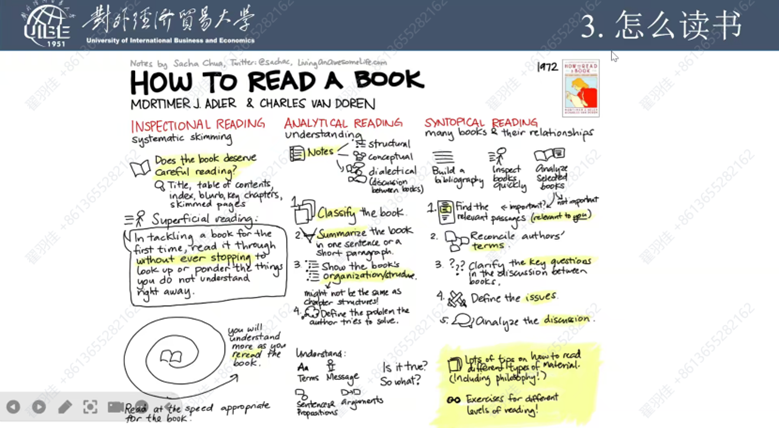 對外經濟貿易大學
University of International Business and Economics
UIBE
1951
3. 怎么读书
Notes by Sacha Chua, Twitter: @sachac, LivingAnAwesomeLife.com
HOW TO READ A BOOK
MORTIMER J. ADLER & CHARLES VAN DOREN
1972
HOW TO READ A BOOK
INSPECTIONAL READING
systematic skimming
Does the book deserve
careful reading?
Title, table of contents,
index, blurb, key chapters,
skimmed pages
Superficial reading:
In tackling a book for the
first time, read it through
without ever stopping to
look up or ponder the things
you do not understand
right away.
you will
understand
more as you
reread the
book.
Read at the speed appropriate
for the book.
ANALYTICAL READING
understanding
Notes
structural
conceptual
dialectical
(discussion
between books)
1. Classify the book.
2. Summarize the book
in one sentence or a
short paragraph.
3. Show the book's
organization/structure.
might not be the same as
chapter structures!
4. Define the problem the
author tries to solve.
Understand:
Aa
Terms Message
Sentences & Propositions
arguments
Is it true?
So what?
SYNTOPICAL READING
many books & their relationships
Build a
bibliography
Inspect
books
quickly
Analyze
selected
books
1. Find the
relevant passages (relevant to you)
important?
not important
2. Reconcile authors'
terms.
3. ??? Clarify the key questions
in the discussion between
books.
4. Define the issues.
5. Analyze the discussion.
Lots of tips on how to read
different types of material.
(Including philosophy!)
Exercises for different
levels of reading!